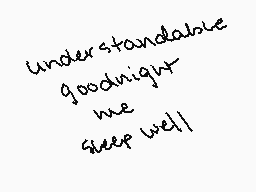 understandable
goodnight
me
sleep well